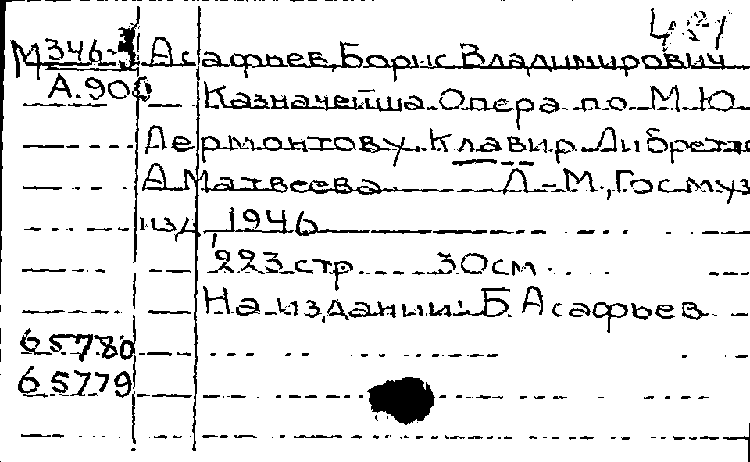 М 346-3 Асафьев, Борис Владимирович
А.900 Казначейша. Опера по М.Ю.
Лермонтову. Клавир. Либретто
А Матвеева Л-М., Госмуз
изд 1946
223 стр 30см.
На издании: Б. Асафьев
65780
65779